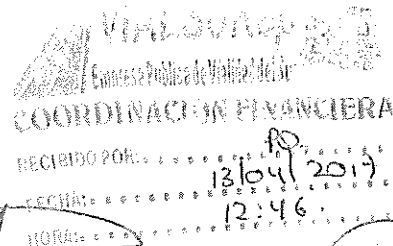 VIALSUR EP
Empresa Pública de Vialidad del Sur
COORDINACIÓN FINANCIERA
RECIBIDO POR: PO.
FECHA: 13/04/2017
HORA: 12:46.